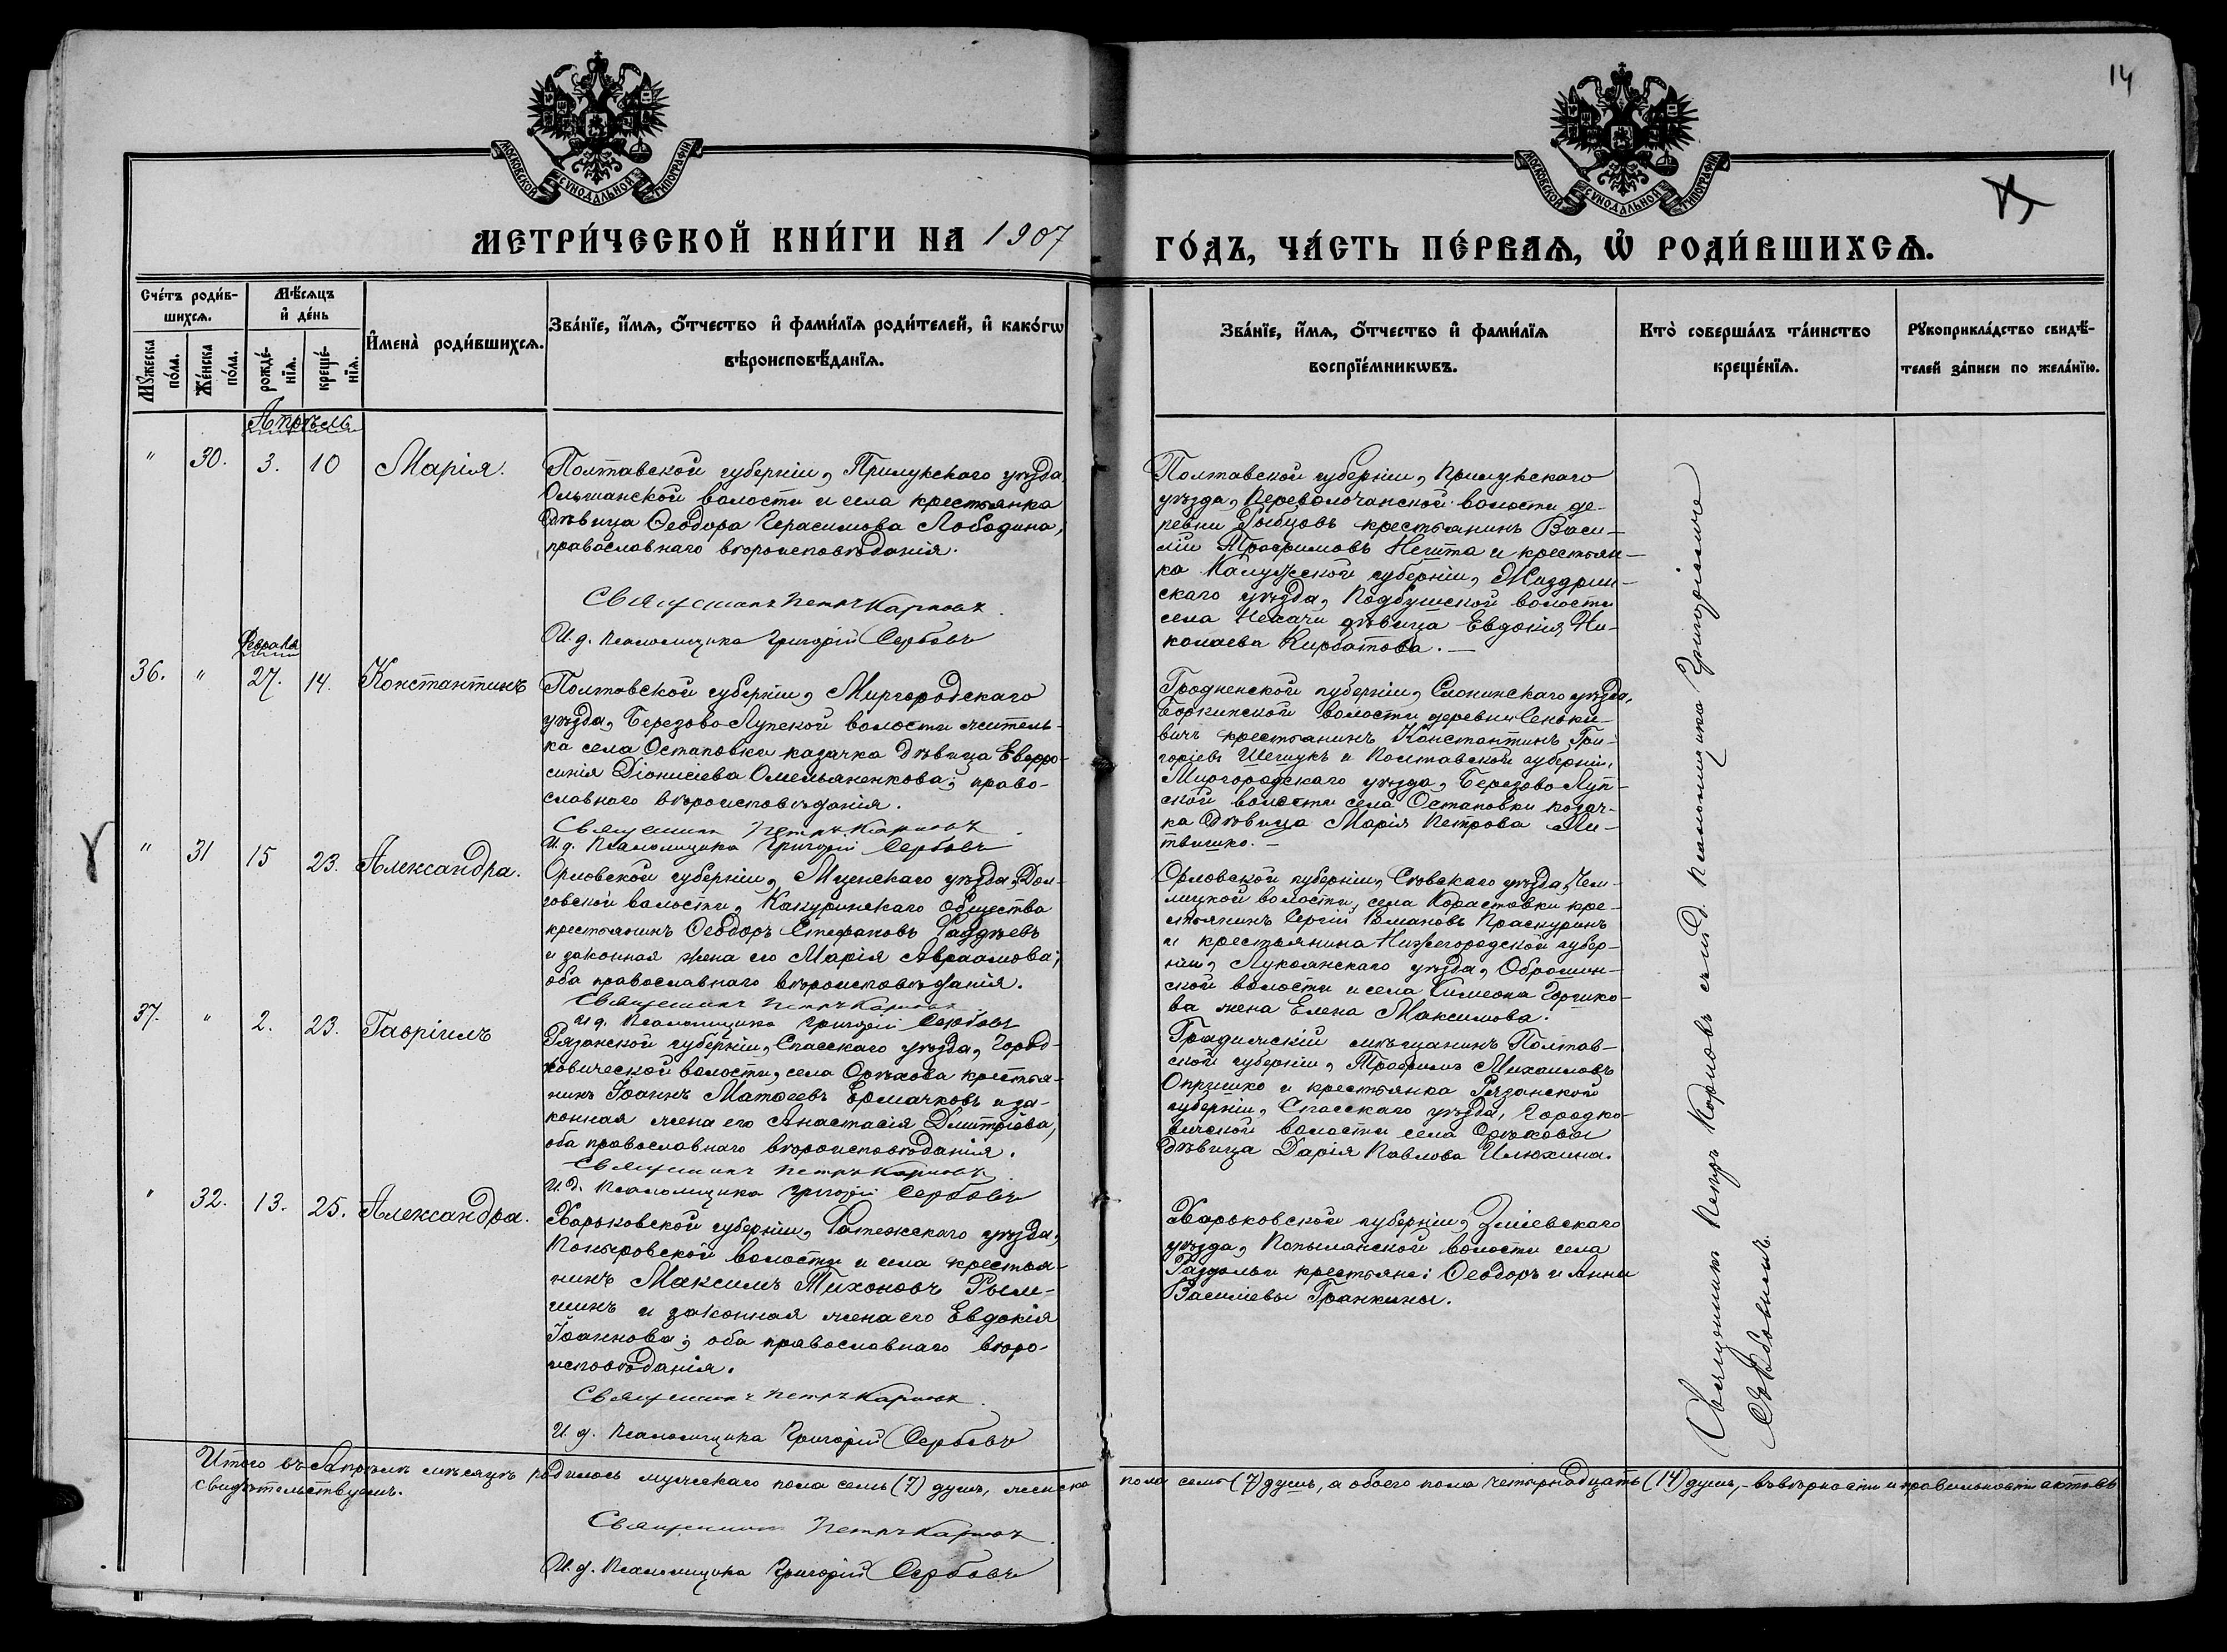 14
МОСКОВСКОЙ СѴНОДАЛЬНОЙ ТИПОГРАФІИ
МОСКОВСКОЙ СѴНОДАЛЬНОЙ ТИПОГРАФІИ
МЕТРИ́ЧЕСКОЙ КНИ́ГИ НА 1907
ГО́ДЪ, ЧА́СТЬ ПЕ́РВАѦ, Ѡ҆ РОДИ́ВШИХСѦ.
Сче́тъ роди́в-
шихсѧ.
Мѣ́сѧцъ
и҆ де́нь
Мꙋ́жеска по́ла.
Же́нска по́ла.
рожде́-
нїѧ.
креще́-
нїѧ.
И҆мена̀ роди́вшихсѧ.
Зва́нїе, и҆́мѧ, ѻ҆́тчество и҆ фами́лїѧ роди́телей, и҆ како́гѡ
вѣроисповѣ́данїѧ.
Зва́нїе, и҆́мѧ, ѻ҆́тчество и҆ фами́лїѧ
воспрїе́мникѡвъ.
Кто̀ соверша́лъ та́инство
креще́нїѧ.
Рꙋкоприкла́дство свидѣ́-
телей за́писи по жела́нїю.
Апрѣль
" 30. 3. 10 Марія.
Полтавской губерніи, Прилукскаго уѣзда
Ольшанской волости и села крестьянка
дѣвица Ѳеодора Герасимова Лободина,
православнаго вѣроисповѣданія.
Священникъ Петръ Карповъ.
И. д. Псаломщика Григорій Сербовъ
Полтавской губерніи, Прилукскаго
уѣзда, Переволочанской волости де-
ревни Рыбцовъ крестьянинъ Васи-
лій Трофимовъ Нешта и крестьян-
ка Калужской губерніи, Жиздрин-
скаго уѣзда, Подбужской волости
села Нехачи дѣвица Евдокія Ни-
колаева Кирбатова.
Февраля
36. " 27. 14. Константинъ
Полтавской губерніи, Миргородскаго
уѣзда, Березово Лупской волости житель-
ка села Остаповки казачка дѣвица Евфро-
синія Діонисіева Омельяненкова; право-
славнаго вѣроисповѣданія.
Священникъ Петръ Карповъ.
И. д. Псаломщика Григорій Сербовъ
Гродненской губерніи, Слонимскаго уѣзда,
Боркинской волости деревни Сеньки-
вичъ крестьянинъ Константинъ Гри-
горіевъ Шешукъ и Полтавской губерніи,
Миргородскаго уѣзда, Березово Луп-
ской волости села Остаповки казач-
ка дѣвица Марія Петрова Ли-
твишко.
" 31 15 23. Александра.
Орловской губерніи, Мценскаго уѣзда, Дол-
говской волости, Какуринскаго общества
крестьянинъ Ѳеодоръ Стефановъ Фаддѣевъ
и законная жена его Марія Авраамова;
оба православнаго вѣроисповѣданія.
Священникъ Петръ Карповъ
И. д. Псаломщика Григорій Сербовъ
Орловской губерніи, Сѣвскаго уѣзда, Чем-
лицкой волости, села Коростовки кре-
стьянинъ Сергій Романовъ Праскуринъ
и крестьянина Нижегородской губер-
ніи, Лукоянскаго уѣзда, Оброчин-
ской волости и села Симеона Горшко-
ва жена Елена Максимова.
37. " 2. 23. Гавріилъ
Рязанской губерніи, Спасскаго уѣзда, Город-
ковической волости, села Орѣхова крестья-
нинъ Іоаннъ Матѳеевъ Ермачковъ и за-
конная жена его Анастасія Димитріева,
оба православнаго вѣроисповѣданія.
Священникъ Петръ Карповъ
И. д. Псаломщика Григорій Сербовъ
Градижскій мѣщанинъ Полтав-
ской губерніи, Трофимъ Михаиловъ
Опришко и крестьянка Рязанской
губерніи, Спасскаго уѣзда, Городко-
вичской волости села Орѣховы
дѣвица Дарія Павлова Илюхина.
" 32. 13. 25. Александра.
Харьковской губерніи, Фатежскаго уѣзда,
Поныровской волости и села крестья-
нинъ Максимъ Тихоновъ Рыш-
шинъ и законная жена его Евдокія
Іоаннова; оба православнаго вѣро-
исповѣданія.
Священникъ Петръ Карповъ.
И. д. Псаломщика Григорій Сербовъ
Харьковской губерніи, Зміевскаго
уѣзда, Волости села
крестьяне: Ѳеодоръ и Анна
Василіевы Гранкины.
Священникъ Петръ Карповъ съ и. д. Псаломщика Григоріемъ
Сербовымъ.
Итого въ Апрѣлѣ мѣсяцѣ родилось мужескаго пола семь (7) душъ, женска пола семь (7) душъ, а обоего пола четырнадцать (14) душъ, - въ вѣрности и правильности актовъ
свидѣтельствуемъ.
Священникъ Петръ Карповъ.
И. д. Псаломщика Григорій Сербовъ